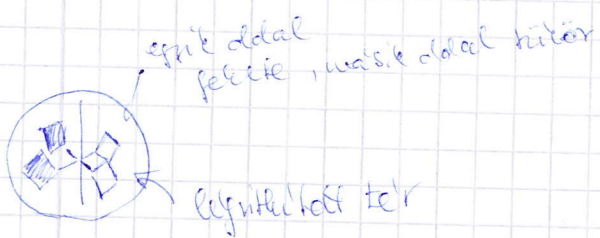 egyik oldal
fekete, másik oldal tükör
légritkított tér